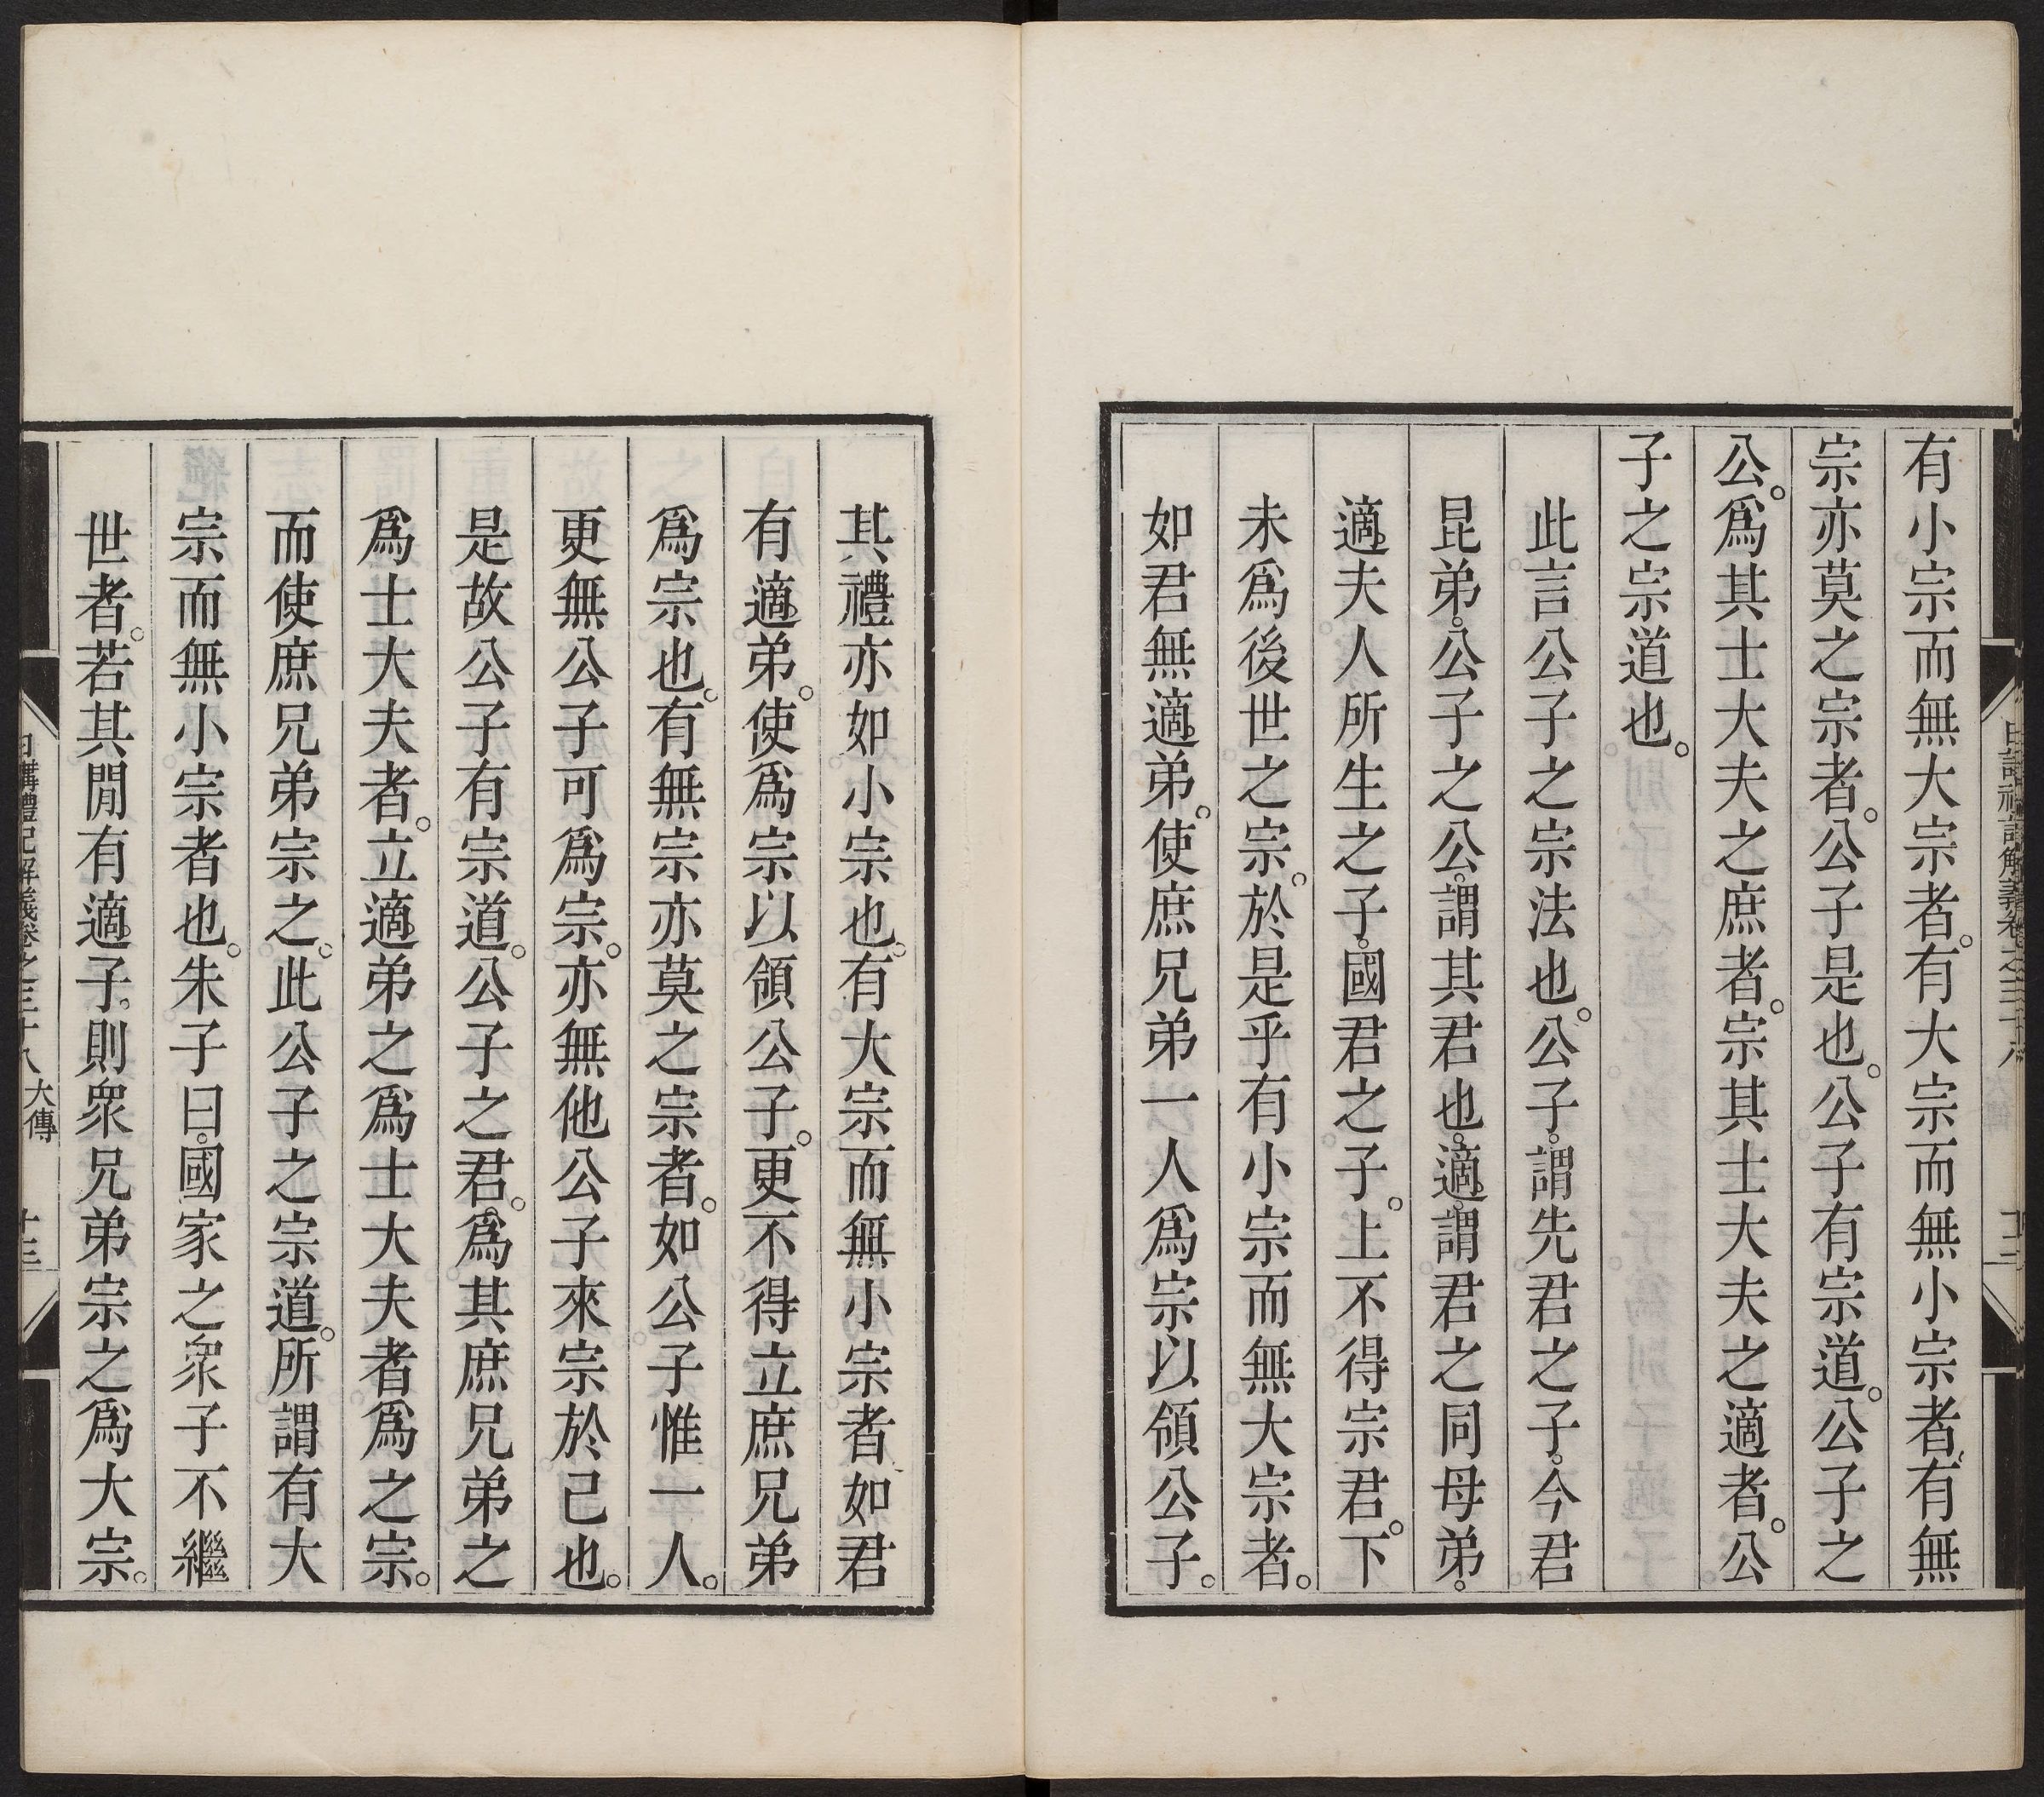 有小宗而無大宗者。有大宗而無小宗者。有無
宗亦莫之宗者。公子是也。公子有宗道。公子之
公。爲其士大夫之庶者。宗其士大夫之適者。公
子之宗道也。
此言公子之宗法也。公子。謂先君之子。今君
昆弟。公子之公。謂其君也。適。謂君之同母弟。
適夫人所生之子。國君之子。上不得宗君。下
未爲後世之宗。於是乎有小宗而無大宗者。
如君無適弟。使庶兄弟一人爲宗以領公子。
其禮亦如小宗也。有大宗而無小宗者如君
有適弟。使爲宗以領公子。更不得立庶兄弟
爲宗也。有無宗亦莫之宗者。如公子惟一人。
更無公子可爲宗。亦無他公子來宗於己也。
是故公子有宗道。公子之君。爲其庶兄弟之
爲士大夫者。立適弟之爲士大夫者爲之宗。
而使庶兄弟宗之。此公子之宗道。所謂有大
宗而無小宗者也。朱子曰。國家之衆子不繼
世者。若其閒有適子。則衆兄弟宗之爲大宗。
日講禮記解義卷之三十八 大傳 十三